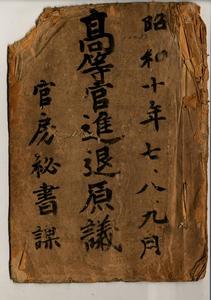 昭和十年七、八、九月
高等官進退原議
官房秘書課